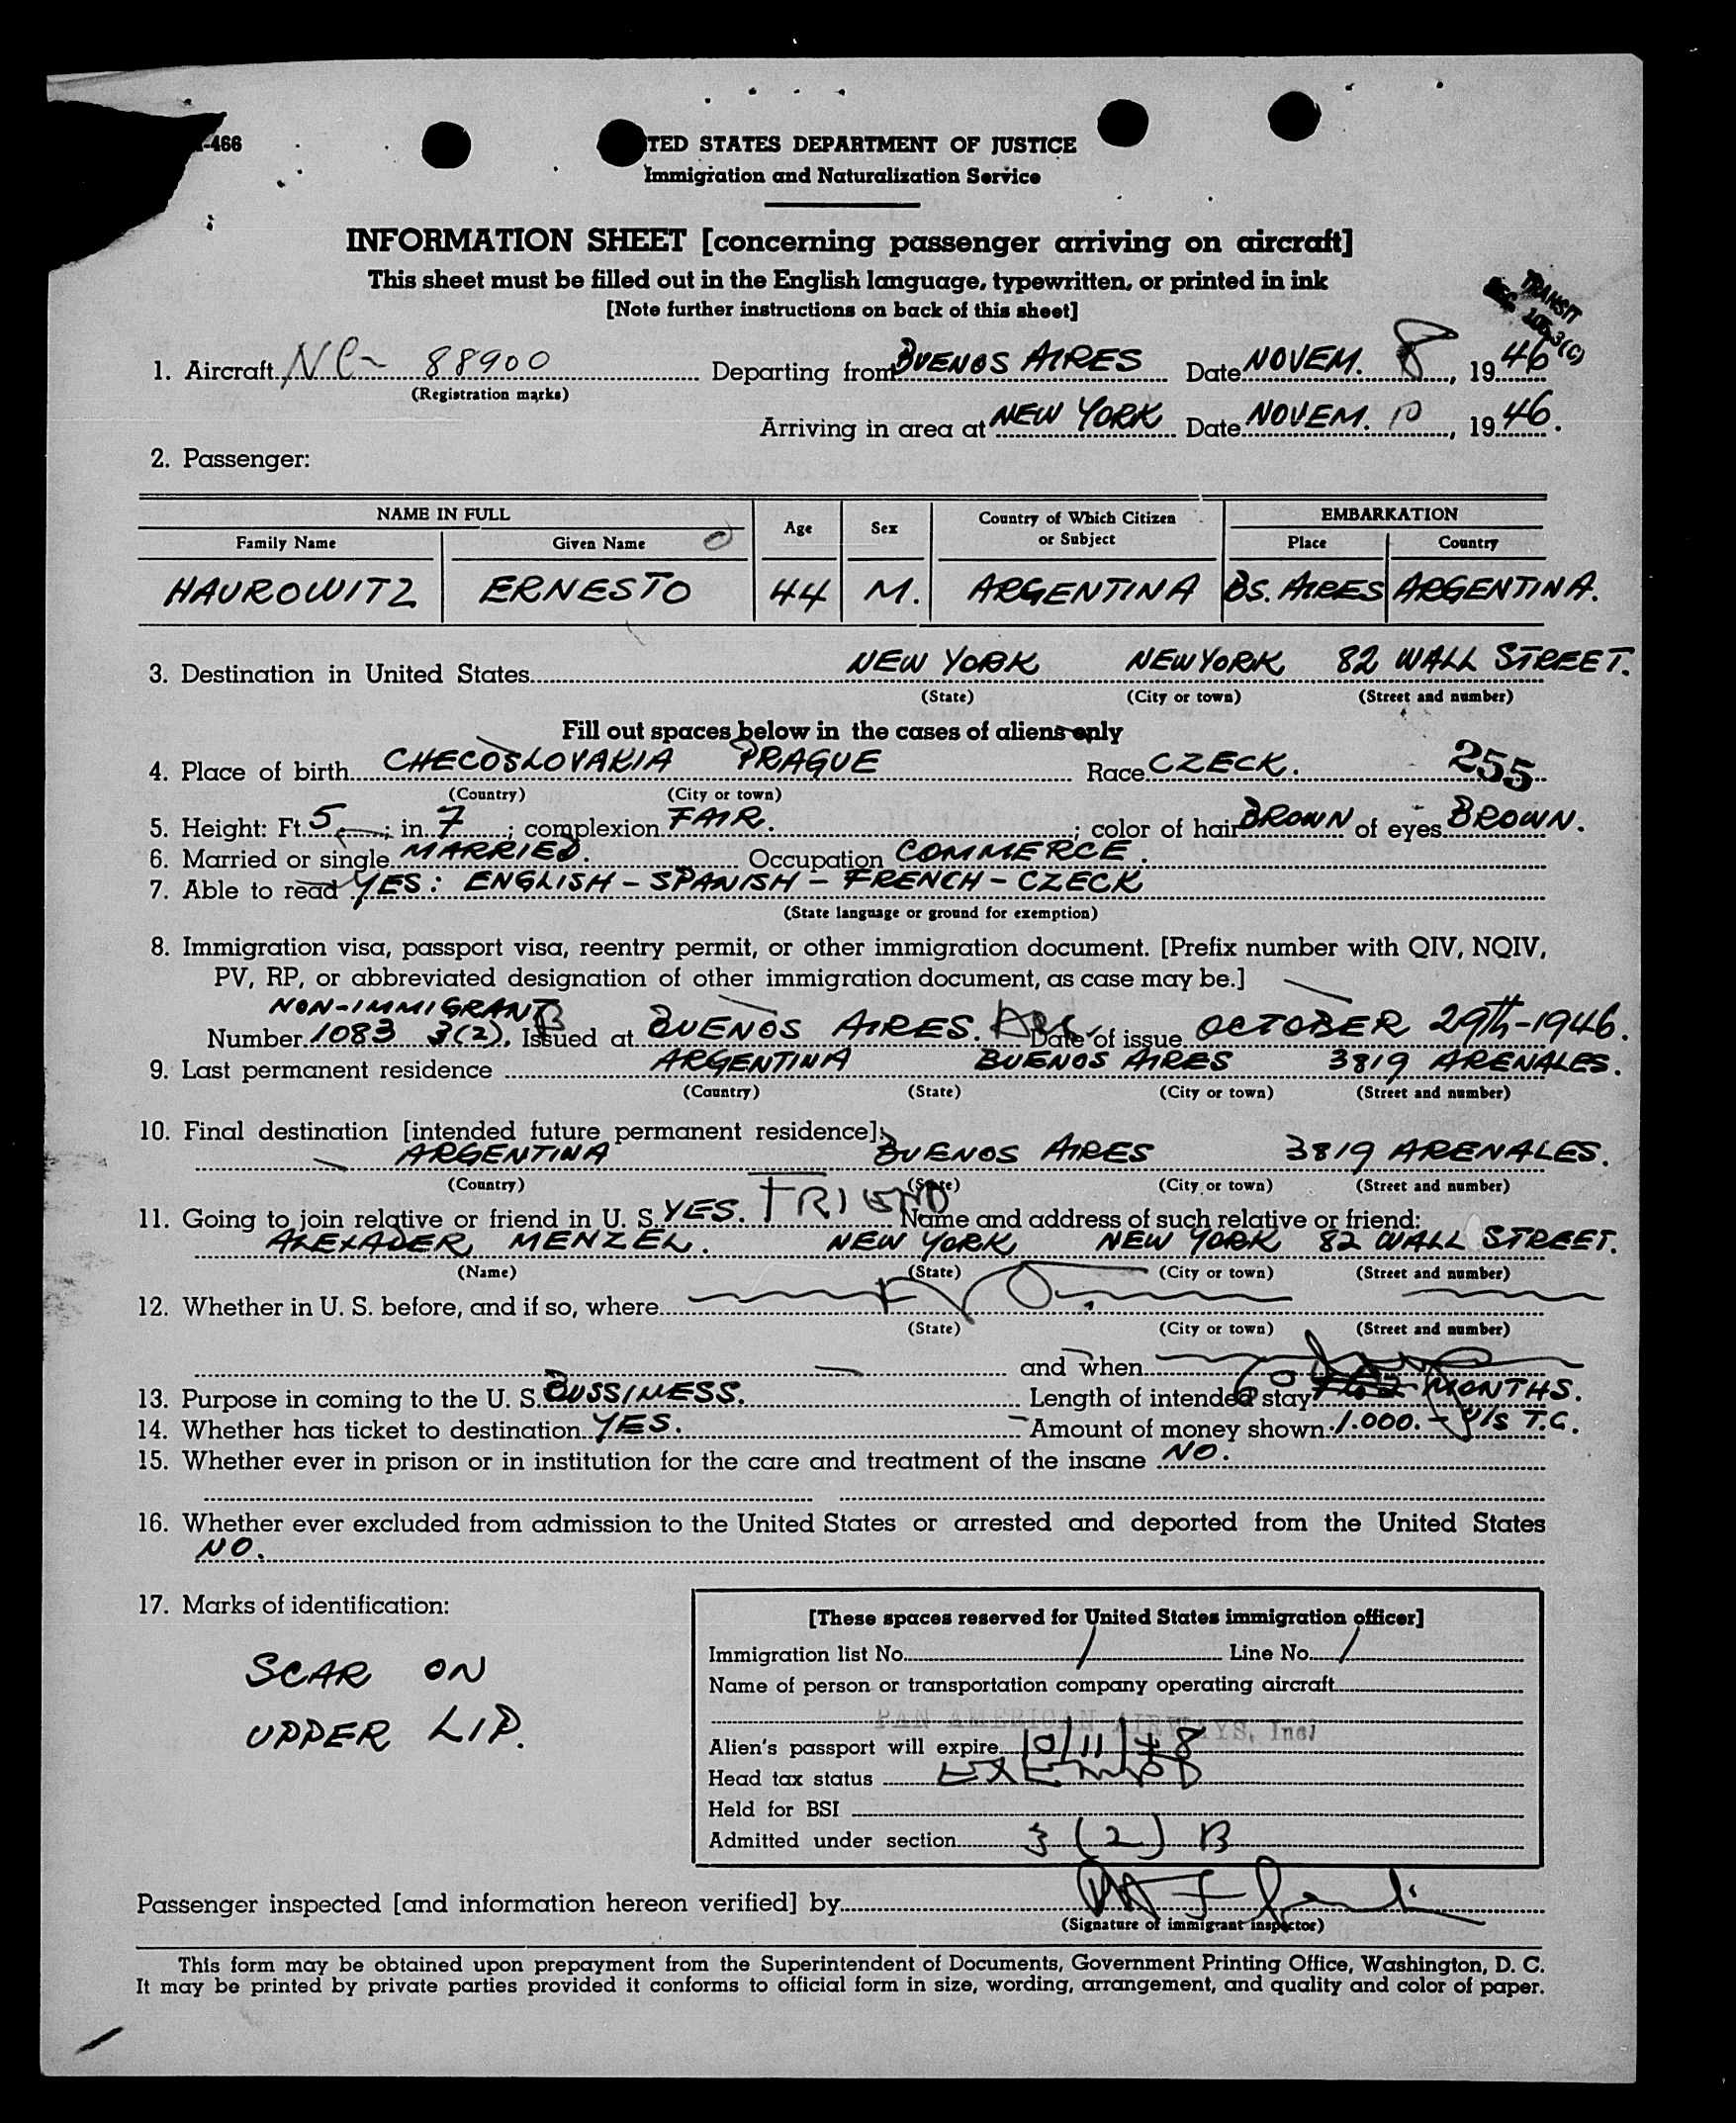 -466
TED STATES DEPARTMENT OF JUSTICE
Immigration and Naturalization Service
INFORMATION SHEET [concerning passenger arriving on aircraft]
This sheet must be filled out in the English language, typewritten, or printed in ink
[Note further instructions on back of this sheet]
TRANSIT
SEC 105.3(C)
1. Aircraft NC- 88900 Departing from BUENOS AIRES Date NOVEM. 8, 1946
(Registration marks)
Arriving in area at NEW YORK Date NOVEM. 10, 1946.
2. Passenger:
NAME IN FULL Age Sex Country of Which Citizen or Subject EMBARKATION
Family Name Given Name Place Country
HAUROWITZ ERNESTO 44 M. ARGENTINA BS. AIRES ARGENTINA.
3. Destination in United States NEW YORK NEW YORK 82 WALL STREET.
(State) (City or town) (Street and number)
Fill out spaces below in the cases of aliens only
4. Place of birth CHECOSLOVAKIA PRAGUE Race CZECK. 255
(Country) (City or town)
5. Height: Ft. 5; in. 7; complexion FAIR.; color of hair BROWN of eyes BROWN.
6. Married or single MARRIED. Occupation COMMERCE.
7. Able to read YES: ENGLISH - SPANISH - FRENCH - CZECK
(State language or ground for exemption)
8. Immigration visa, passport visa, reentry permit, or other immigration document. [Prefix number with QIV, NQIV,
PV, RP, or abbreviated designation of other immigration document, as case may be.]
NON-IMMIGRANT
Number 1083 3(2). B Issued at BUENOS AIRES. Date of issue OCTOBER 29th-1946.
9. Last permanent residence ARGENTINA BUENOS AIRES 3819 ARENALES.
(Country) (State) (City or town) (Street and number)
10. Final destination [intended future permanent residence]:
ARGENTINA BUENOS AIRES 3819 ARENALES.
(Country) (State) (City or town) (Street and number)
11. Going to join relative or friend in U. S. YES. FRIEND Name and address of such relative or friend:
ALEXADER MENZEL. NEW YORK NEW YORK 82 WALL STREET.
(Name) (State) (City or town) (Street and number)
12. Whether in U. S. before, and if so, where
(State) (City or town) (Street and number)
and when
13. Purpose in coming to the U. S. BUSSINESS. Length of intended stay MONTHS.
14. Whether has ticket to destination YES. Amount of money shown 1.000.- T.C.
15. Whether ever in prison or in institution for the care and treatment of the insane NO.
16. Whether ever excluded from admission to the United States or arrested and deported from the United States
NO.
17. Marks of identification:
SCAR ON
UPPER LIP.
[These spaces reserved for United States immigration officer]
Immigration list No. 1 Line No. 1
Name of person or transportation company operating aircraft
PAN AMERICAN AIRWAYS, Inc.
Alien's passport will expire 10/11/48
Head tax status EXEMPT
Held for BSI
Admitted under section 3 (2) B
Passenger inspected [and information hereon verified] by
(Signature of immigrant inspector)
This form may be obtained upon prepayment from the Superintendent of Documents, Government Printing Office, Washington, D. C.
It may be printed by private parties provided it conforms to official form in size, wording, arrangement, and quality and color of paper.